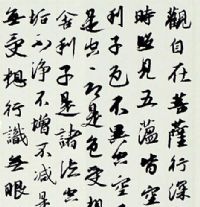 觀自在菩薩行深
時照見五蘊皆空
利子色不異空空
是空〻即是色受想
舍利子是諸法空
垢不淨不增不減是
無受想行識無眼